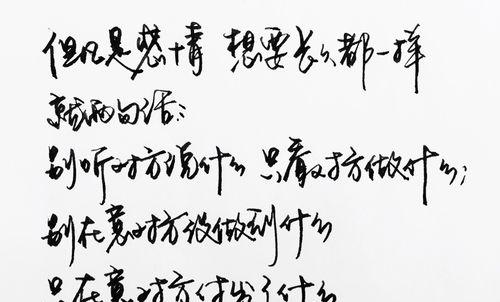 但凡是感情 想要长久都一样
就两句话:
别听对方说什么 只看对方做什么;
别在意对方没做到什么
只在意对方付出了什么